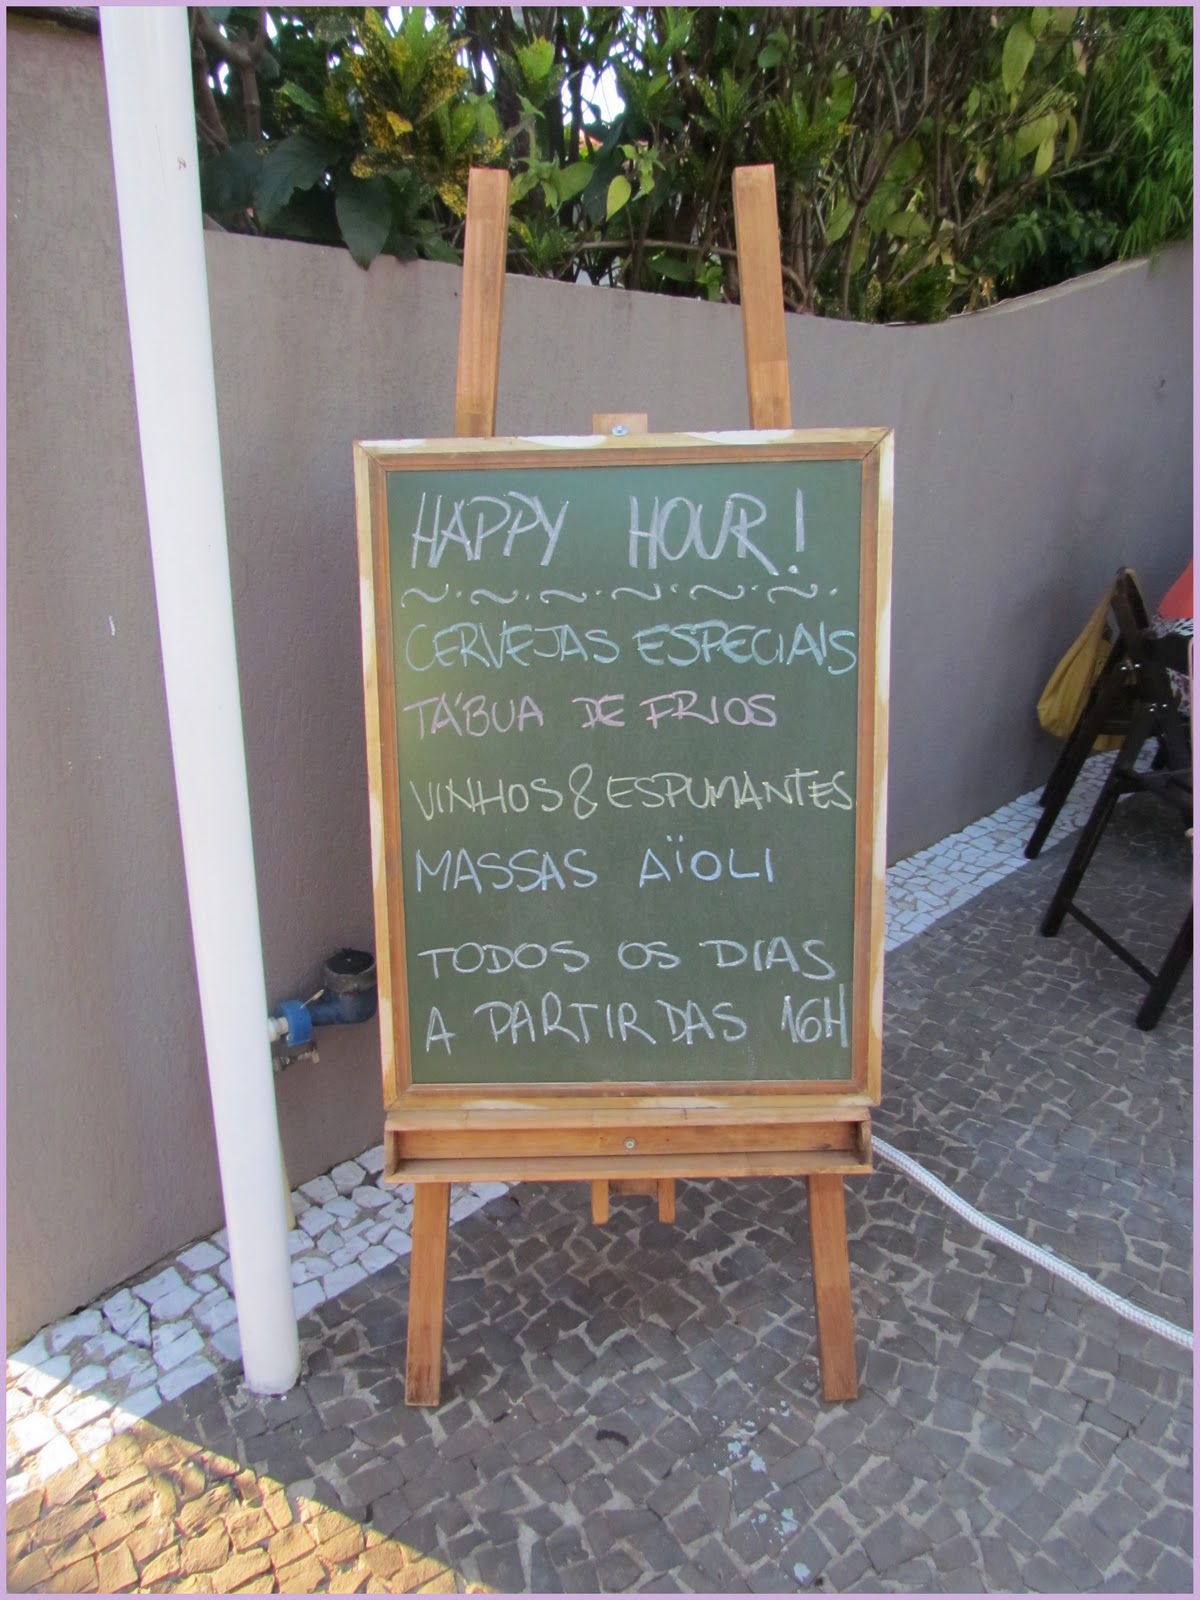 HAPPY HOUR!
CERVEJAS ESPECIAIS
TÁBUA DE FRIOS
VINHOS & ESPUMANTES
MASSAS AÏOLI
TODOS OS DIAS
A PARTIR DAS 16H